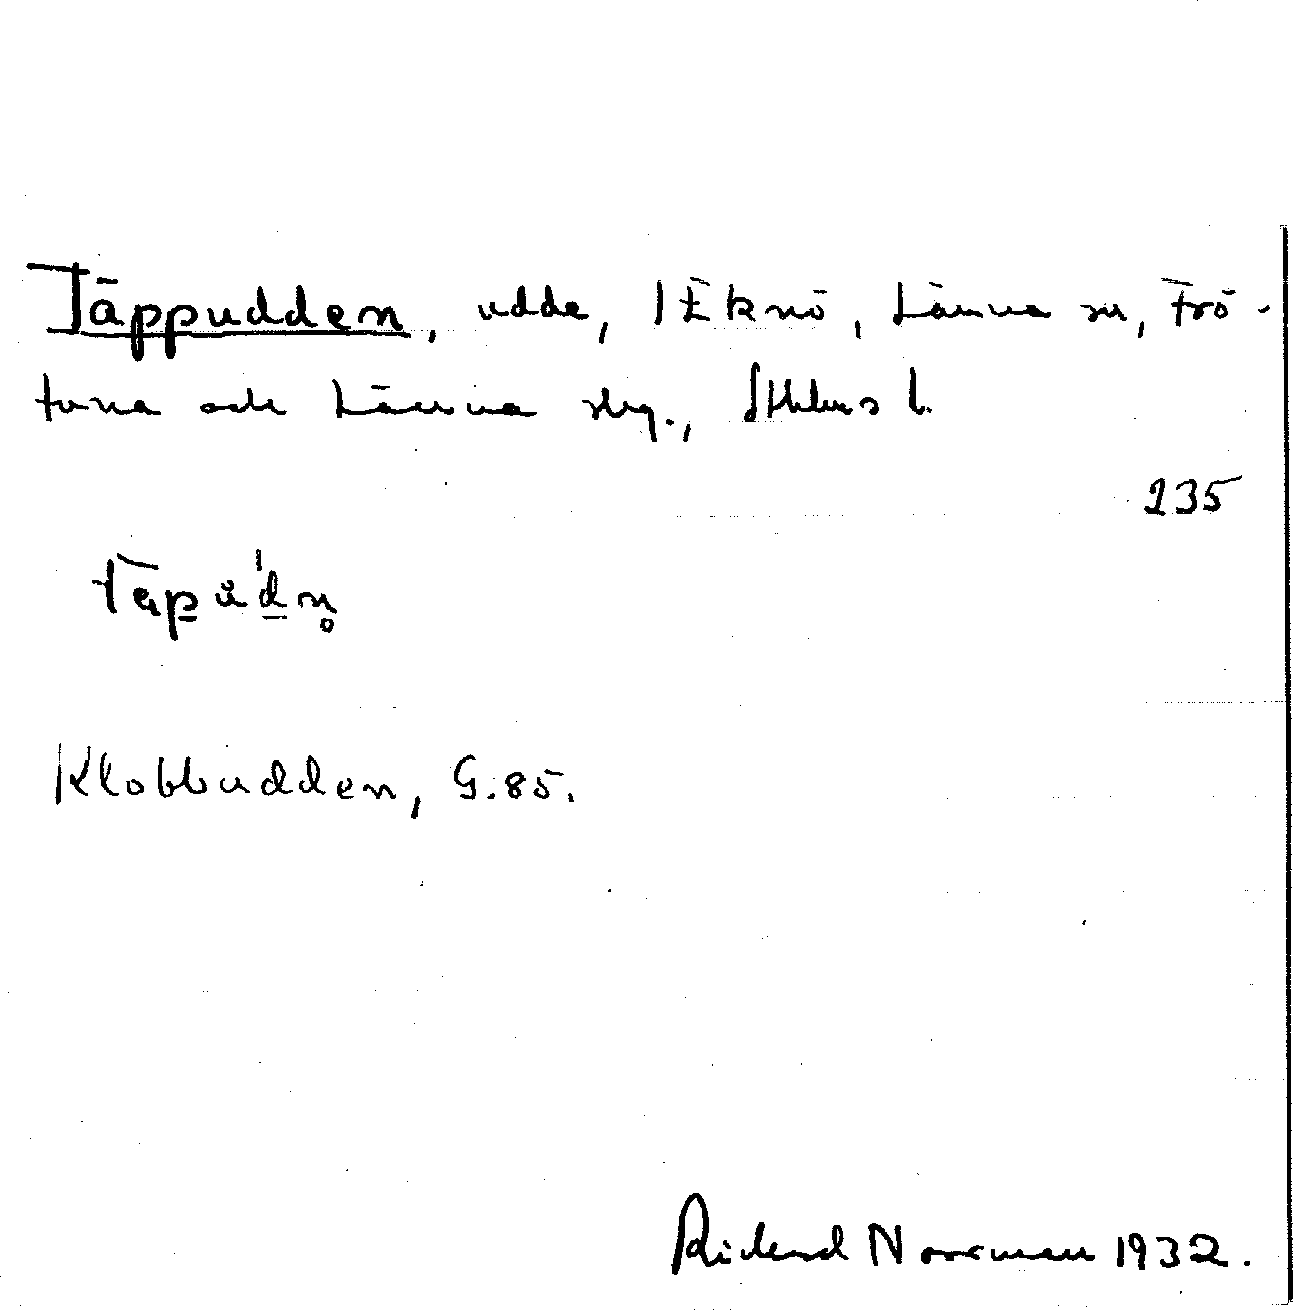 Täppudden, udde, 1 Eknö, Länna sn, Frö-
tuna och Länna skg., Sthlms l.
235
Klobbudden, G.85.
Rickard Norrman 1932.